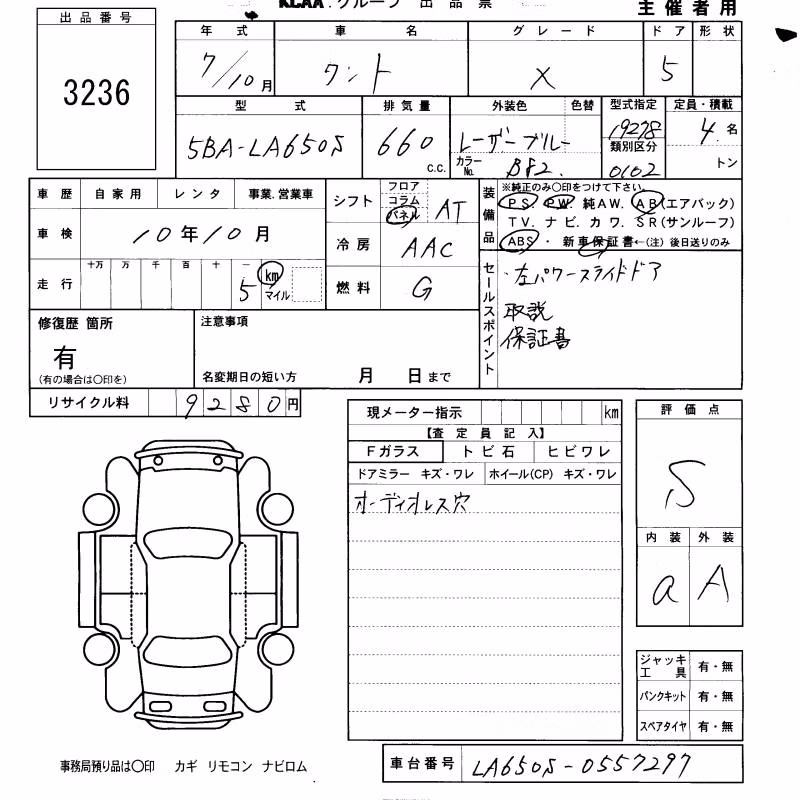 KCAA グループ 出品票
主催者用
出品番号
3236
年式 車名 グレード ドア 形状
7/10月 タント X 5
型式 排気量 外装色 色替 型式指定 定員・積載
5BA-LA650S 660 c.c. レーザーブルー 19278 4名
カラーNo. B82. 類別区分 0102 トン
車歴 自家用 レンタ 事業.営業車
車検 10年10月
走行 十万 万 千 百 十 一 km
5 マイル
シフト フロア コラム パネル AT
冷房 AAC
燃料 G
装備品 ※純正のみ〇印をつけて下さい。
PS. PW. 純AW. AB(エアバック)
TV. ナビ. カワ. SR(サンルーフ)
ABS・ 新車保証書←(注) 後日送りのみ
セールスポイント
・左パワースライドドア
取説
保証書
修復歴 箇所 注意事項
有
(有の場合は〇印を) 名変期日の短い方 月 日まで
リサイクル料 9280円
現メーター指示 km
【査定員記入】
Fガラス トビ石 ヒビワレ
ドアミラー キズ・ワレ ホイール(CP) キズ・ワレ
オーディオレス穴
評価点
S
内装 外装
a A
ジャッキ工具 有・無
パンクキット 有・無
スペアタイヤ 有・無
事務局預り品は〇印 カギ リモコン ナビロム
車台番号 LA650S-0557297